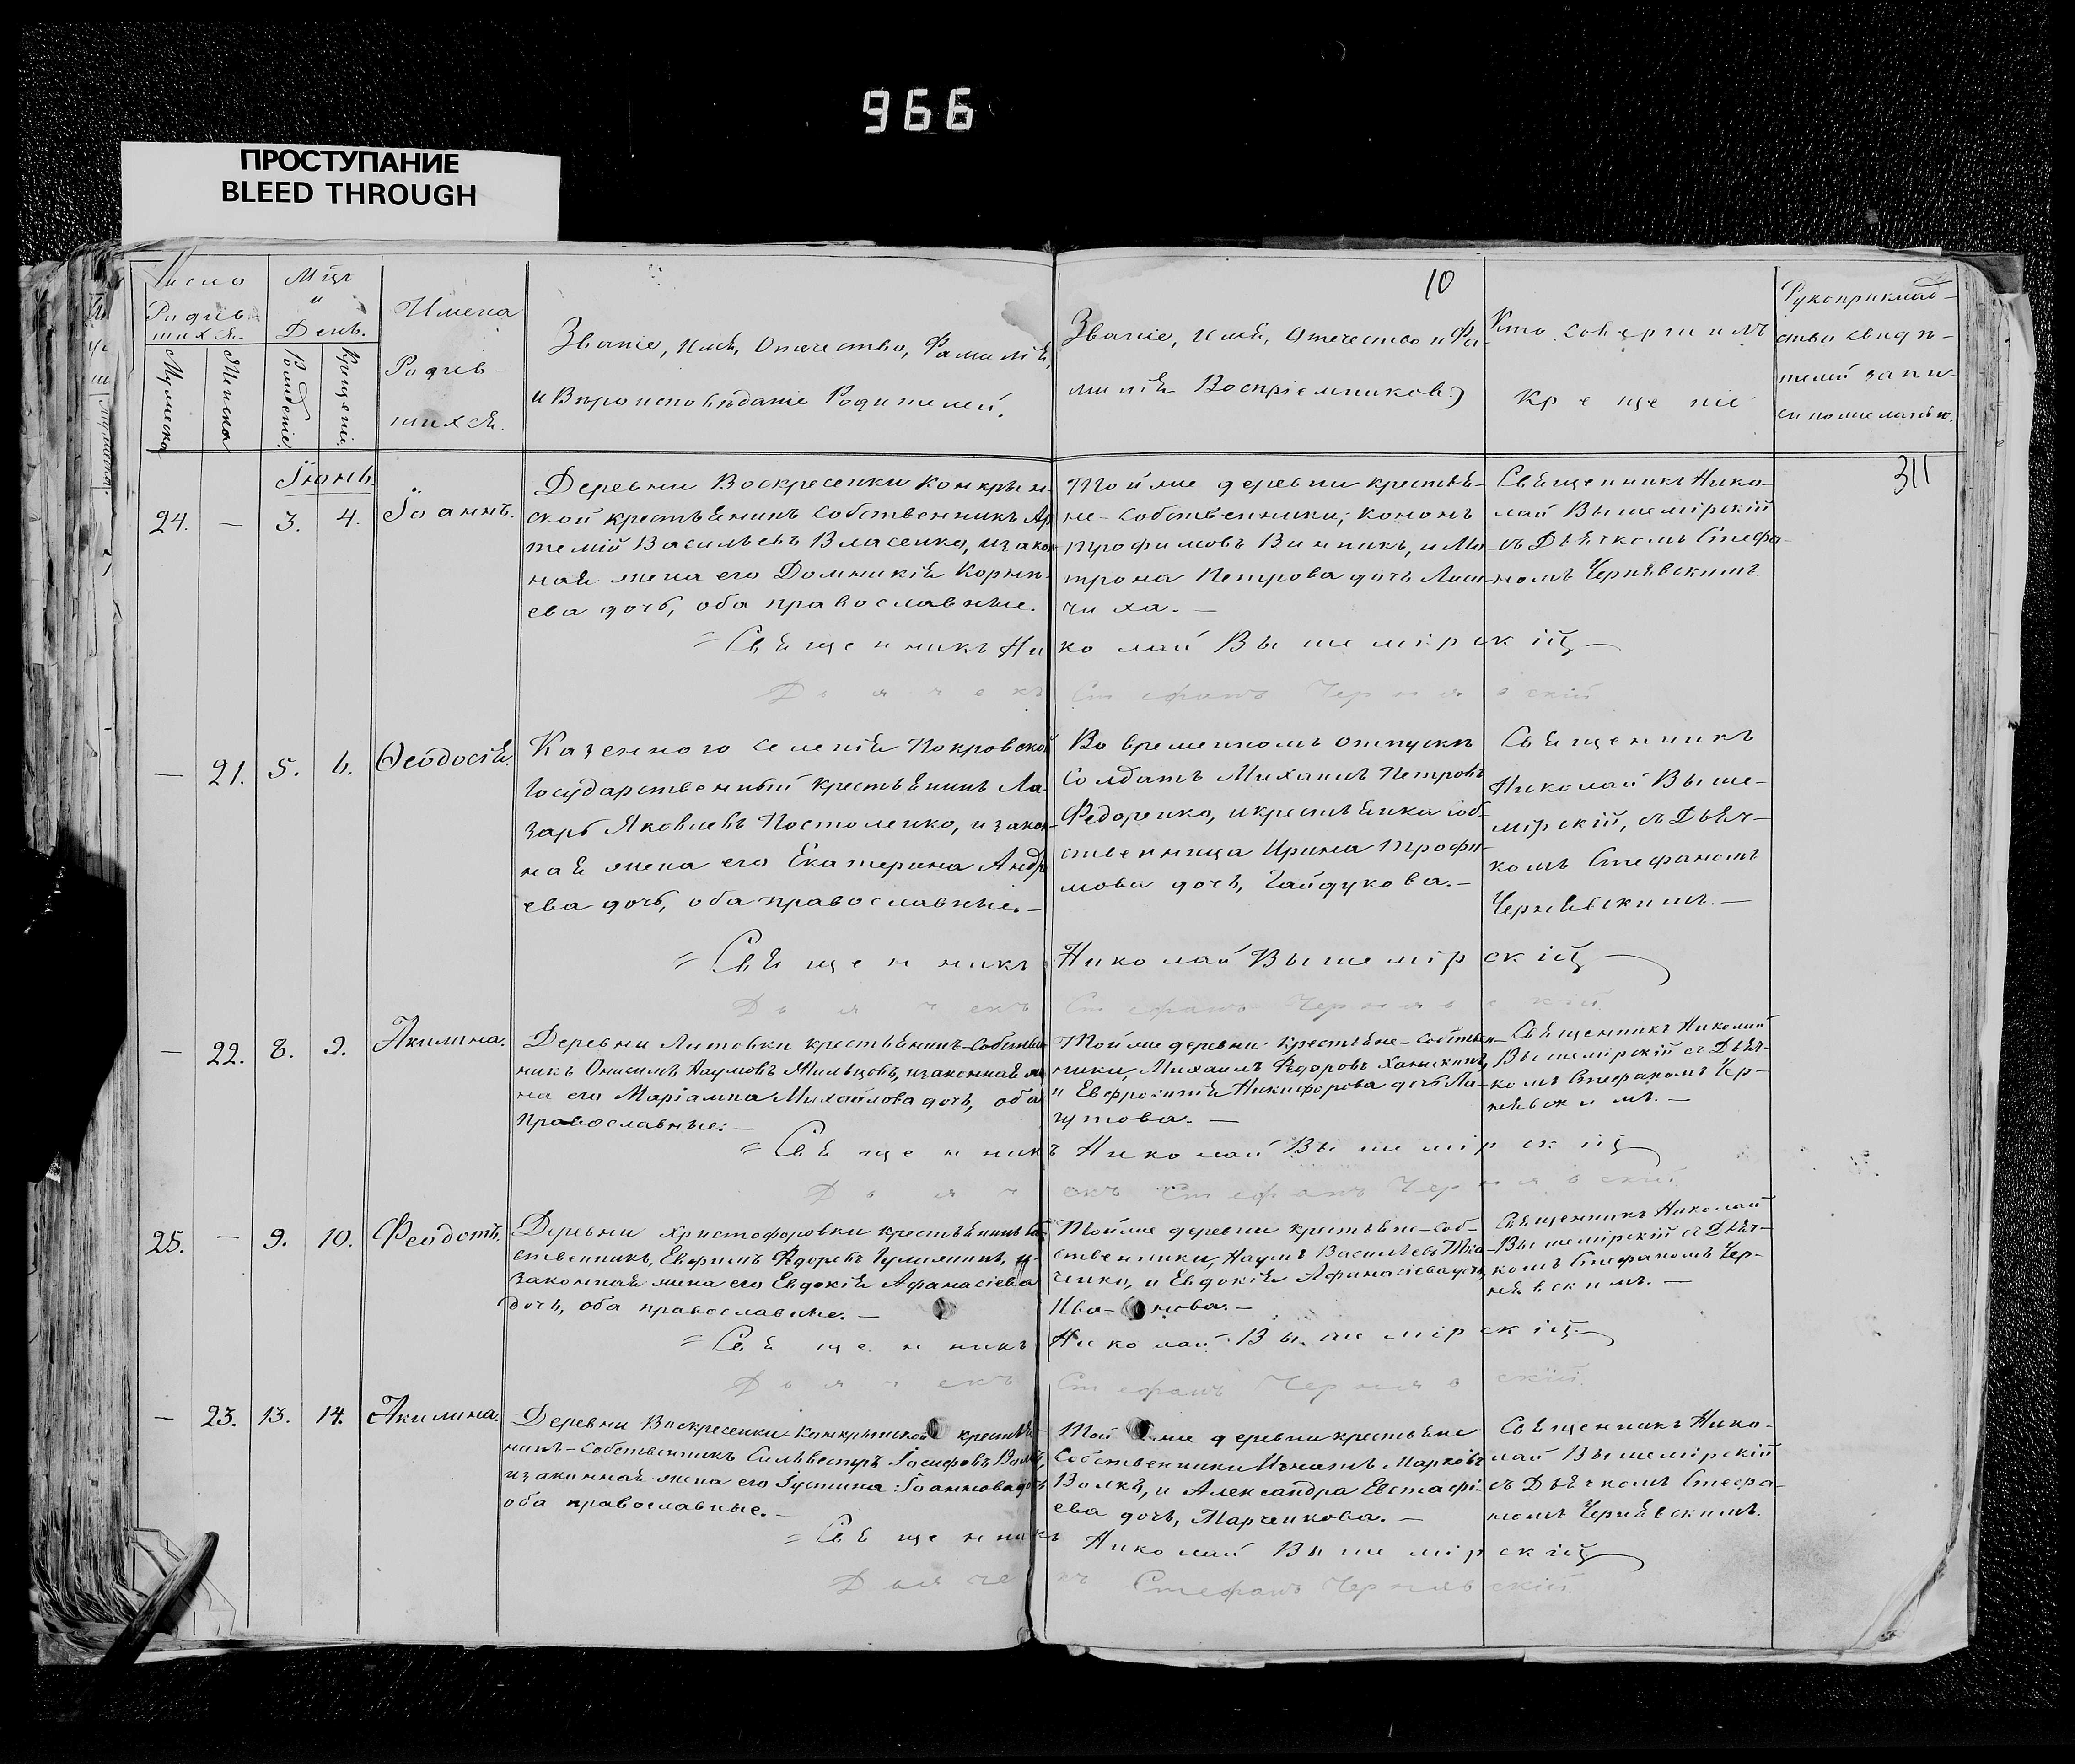 966
ПРОСТУПАНИЕ
BLEED THROUGH
10
311
Число Родив-шихся.
Мужеска
Женска
Мцъ и День.
Рожденіе.
Крещеніе.
Имена Родив-шихся.
Званіе, Имя, Отечество, Фамилія,
и Вѣроисповѣданіе Родителей.
Званіе, Имя, Отечество и Фа-
милія Воспріемниковъ
Кто совершилъ
Крещеніе
Рукоприклад-
ство свидѣ-
телей запи-
си по желанію.
Іюнь.
24. — 3. 4. Іоаннъ.
Деревни Воскресенки Конкрын-
ской крестьянинъ собственникъ Ар
темій Васильевъ Власенко, и закон
ная жена его Домникія Корни-
ева дочь, оба православные.
Тойже деревни крестья-
не-собственники; Кононъ
Трофимовъ Винникъ, и Ма-
трона Петрова дочь Лиси-
чиха. —
Священникъ Нико-
лай Вышемірскій
съ Дьячкомъ Стефа-
номъ Чернявскимъ
= Священникъ Николай Вышемірскій —
Дьячекъ Стефанъ Чернявскій
— 21. 5. 6. Ѳеодосія.
Казенного селенія Покровской
Государственный крестьянинъ Ла-
зарь Яковлевъ Постоленко, и закон-
ная жена его Екатерина Андре
ева дочь, оба православные. —
Во временномъ отпуску
Солдатъ Михаилъ Петровъ
Федоренко, и крестьянка соб-
ственница Ирина Трофи-
мова дочь, Гайдукова. —
Священникъ
Николай Выше-
мірскій, съ Дьяч-
комъ Стефаномъ
Чернявскимъ. —
= Священникъ Николай Вышемірскій —
Дьячекъ Стефанъ Чернявскій
— 22. 8. 9. Акилина.
Деревни Литовки крестьянинъ-собствен
никъ Онисимъ Наумовъ Жильцовъ, и законная же
на его Маріамна Михайлова дочь, оба
православные: —
Тойже деревни крестьяне-собствен-
ники, Михаилъ Федоровъ
и Евфросинія Никифорова дочь Ла-
гутова. —
Священникъ Николай
Вышемірскій съ Дьяч-
комъ Стефаномъ Чер-
нявскимъ. —
= Священникъ Николай Вышемірскій
Дьячекъ Стефанъ Чернявскій
25. — 9. 10. Феодотъ.
Деревни Христофоровки крестьянинъ соб
ственникъ, Евфимъ Федоровъ и
законная жена его Евдокія Афанасіева
дочь, оба православные. —
Тойже деревни крестьяне-соб-
ственники, Наумъ Васильевъ Тка-
ченко, и Евдокія Афанасіева дочь
Ива-нова. —
Священникъ Николай
Вышемірскій съ Дьяч-
комъ Стефаномъ Чер-
нявскимъ. —
= Священникъ Николай Вышемірскій
Дьячекъ Стефанъ Чернявскій
— 23. 13. 14. Акилина.
Деревни Воскресенки Конкрынской крестья
нинъ-собственникъ Сильвестръ Іосифовъ Волкъ,
и законная жена его Іустина Іоаннова дочь
оба православные. —
Тойже деревни крестьяне
Собственники Игнатъ Марковъ
Волкъ, и Александра Евстафі-
ева дочь, Марченкова. —
Священникъ Нико-
лай Вышемірскій
съ Дьячкомъ Стефа-
номъ Чернявскимъ.
= Священникъ Николай Вышемірскій
Дьячекъ Стефанъ Чернявскій